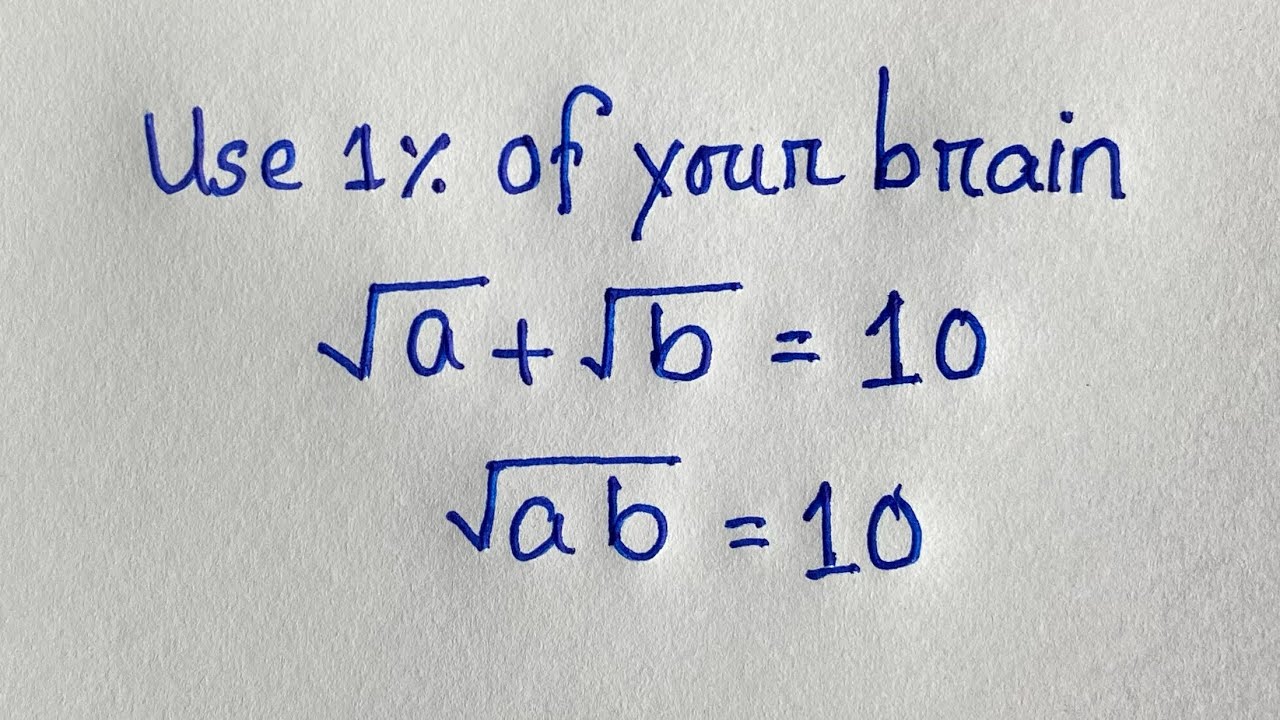 Use 1% of your brain
√a + √b = 10
√ab = 10